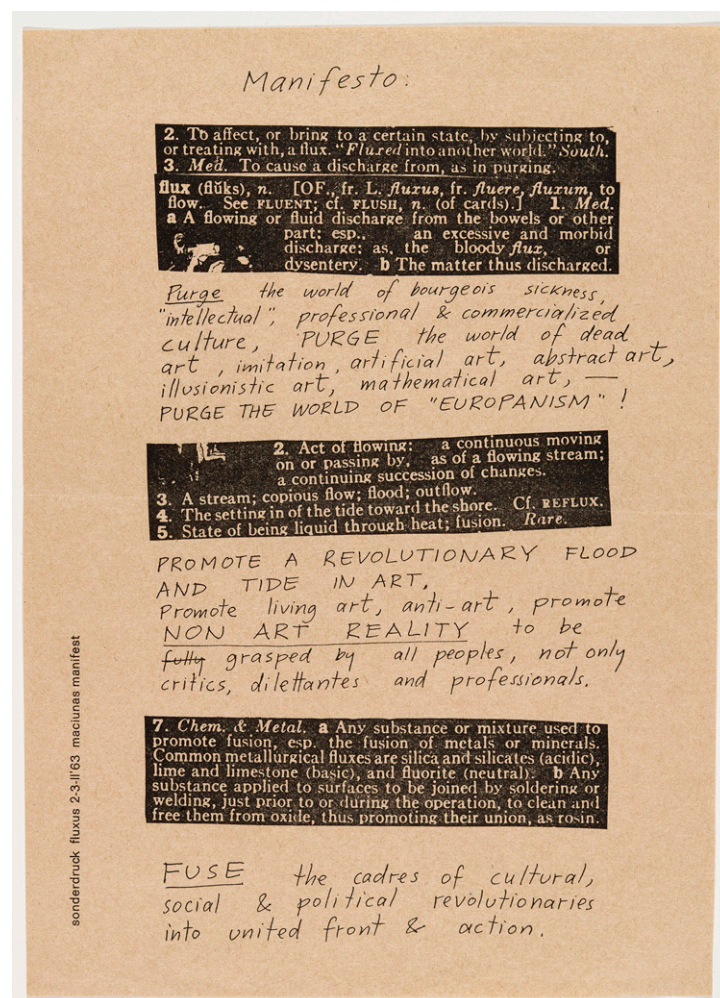 Manifesto:
2. To affect, or bring to a certain state, by subjecting to,
or treating with, a flux. "Fluxed into another world." South.
3. Med. To cause a discharge from, as in purging.
flux (flŭks), n. [OF., fr. L. fluxus, fr. fluere, fluxum, to
flow. See FLUENT; cf. FLUSH, n. (of cards).] 1. Med.
a A flowing or fluid discharge from the bowels or other
part: esp., an excessive and morbid
discharge; as, the bloody flux, or
dysentery. b The matter thus discharged.
Purge the world of bourgeois sickness,
"intellectual", professional & commercialized
culture, PURGE the world of dead
art, imitation, artificial art, abstract art,
illusionistic art, mathematical art, —
PURGE THE WORLD OF "EUROPANISM"!
2. Act of flowing: a continuous moving
on or passing by, as of a flowing stream;
a continuing succession of changes.
3. A stream; copious flow; flood; outflow.
4. The setting in of the tide toward the shore. Cf. REFLUX.
5. State of being liquid through heat; fusion. Rare.
PROMOTE A REVOLUTIONARY FLOOD
AND TIDE IN ART,
Promote living art, anti-art, promote
NON ART REALITY to be
fully grasped by all peoples, not only
critics, dilettantes and professionals.
7. Chem. & Metal. a Any substance or mixture used to
promote fusion, esp. the fusion of metals or minerals.
Common metallurgical fluxes are silica and silicates (acidic),
lime and limestone (basic), and fluorite (neutral). b Any
substance applied to surfaces to be joined by soldering or
welding, just prior to or during the operation, to clean and
free them from oxide, thus promoting their union, as rosin.
FUSE the cadres of cultural,
social & political revolutionaries
into united front & action.
sonderdruck fluxus 2-3-II'63 maciunas manifest